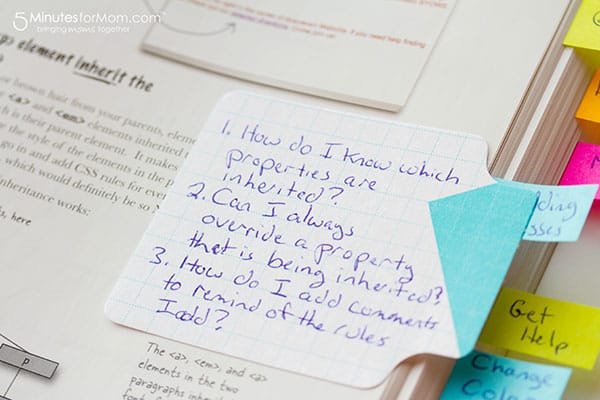 5MinutesforMom.com
bringing moms together
need help finding
<a> element inherit the
or brown hair from your parents, eleme
<a> and <em> elements inherited
is their parent element. It makes
the style of the elements in the p
go in and add CSS rules for ever
which would definitely be so
inheritance works:
here
1. How do I know which
properties are
inherited?
2. Can I always
override a property
that is being inherited?
3. How do I add comments
to remind of the rules
I add?
The <a>, <em>, and <a>
elements in the two
paragraphs inheri
p
Get
Help
Change